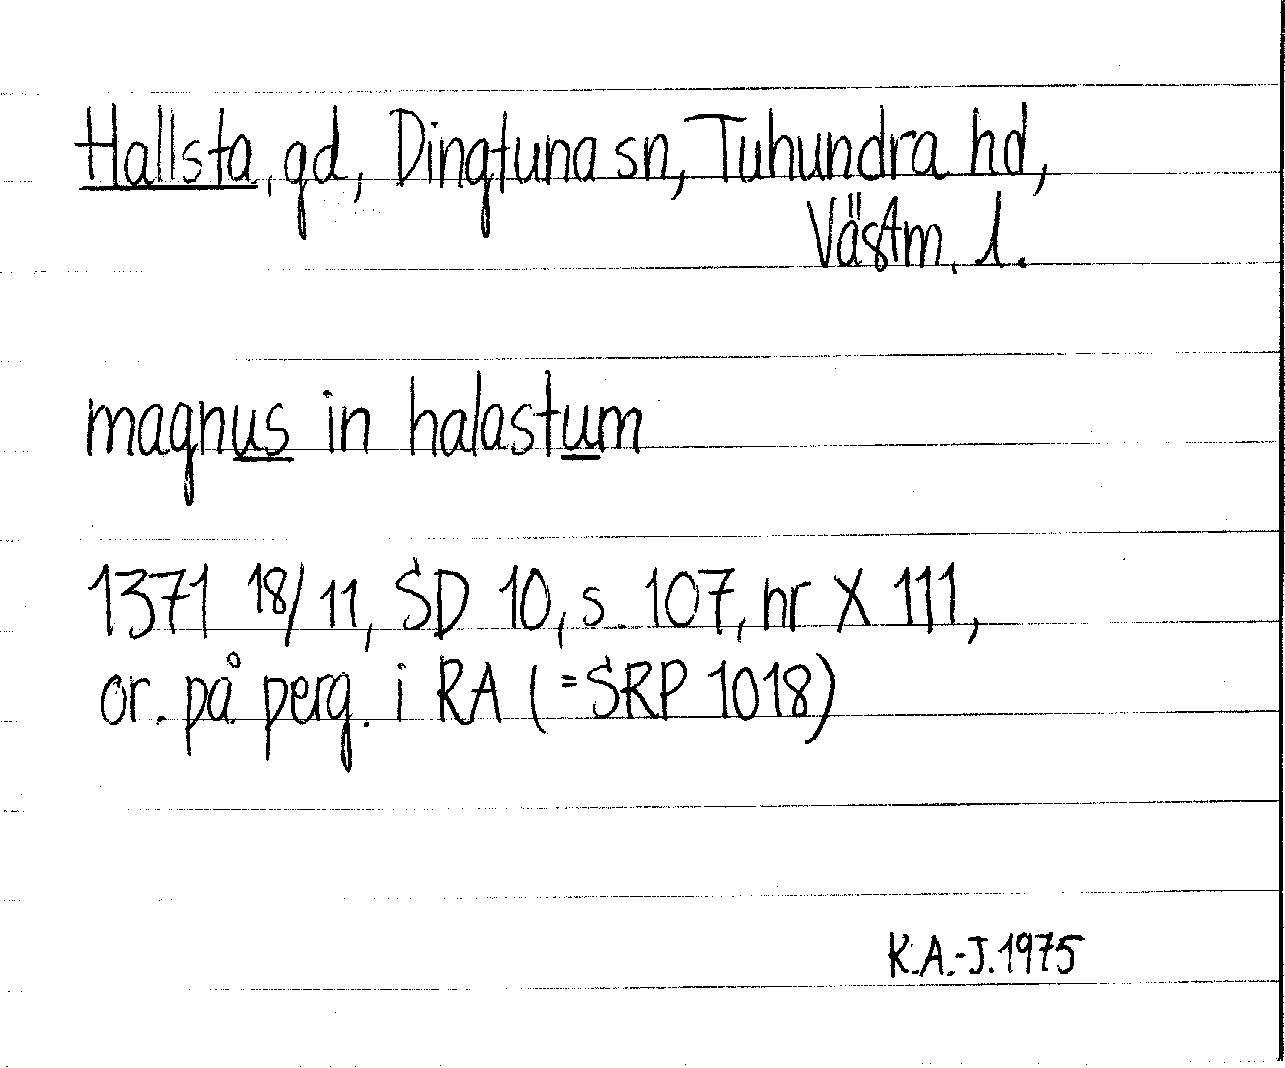 Hallsta, gd, Dingtuna sn, Tuhundra hd,
Västm. l.
magnus in halastum
1371 18/11, SD 10, s. 107, nr X 111,
or. på perg. i RA (=SRP 1018)
K.A.-J. 1975